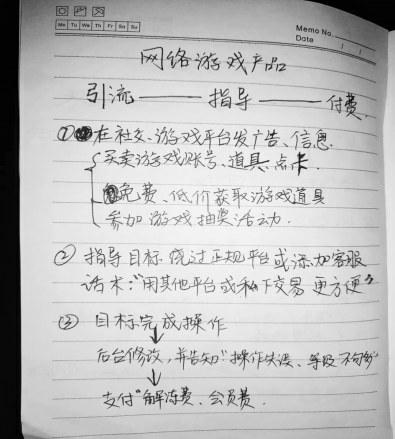 Mo Tu We Th Fr Sa Su
Memo No.
Date / /
网络游戏产品
引流——指导——付费
① 在社交、游戏平台发广告、信息
买卖游戏账号、道具、点卡
免费、低价获取游戏道具
参加游戏抽奖活动.
② 指导目标绕过正规平台或添加客服
话术:"用其他平台或私下交易更方便"
③ 目标完成操作
后台修改,并告知"操作失误、等级不够"
支付"解冻费、会员费.